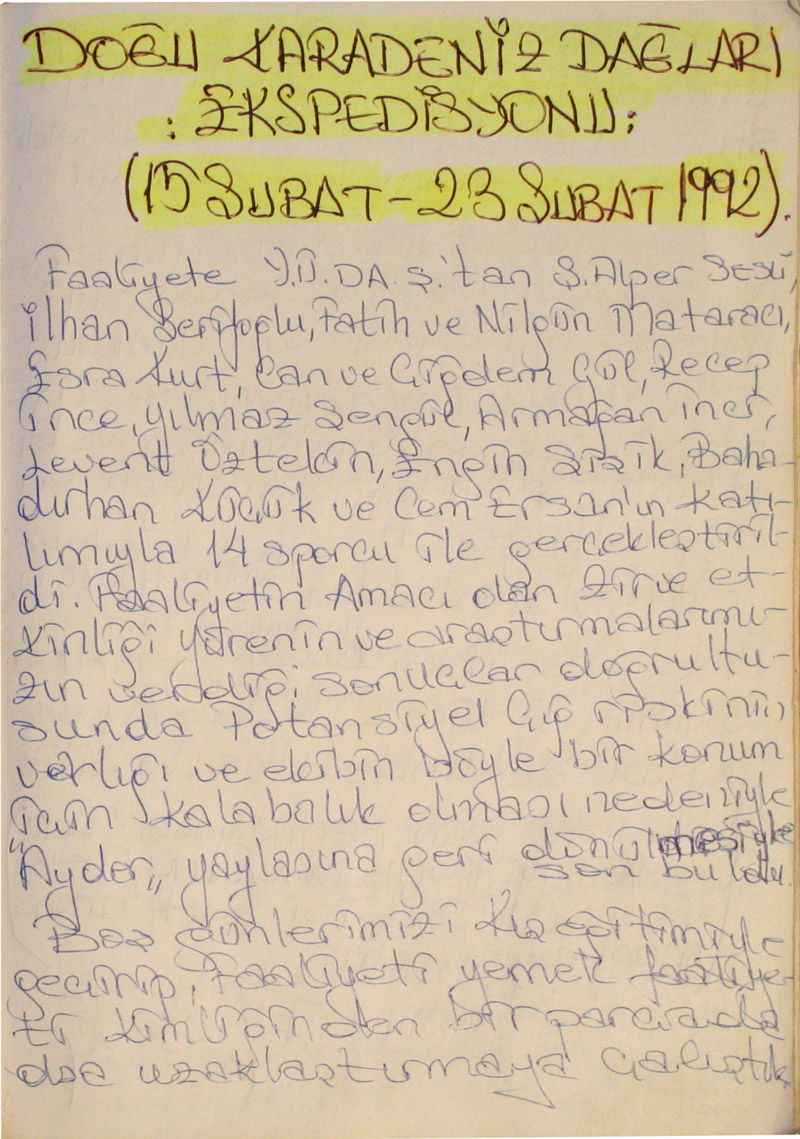 DOĞU KARADENİZ DAĞLARI
: EKSPEDİSYONU:
(15 ŞUBAT - 23 ŞUBAT 1992).
Faaliyete Y.Ü.DA.Ş.'tan S.Alper SESLİ,
İlhan Şerifoğlu, Fatih ve Nilgün Mataracı,
Esra Kurt, Can ve Çiğdem Gül, Recep
İnce, Yılmaz Şengül, Armağan İnci,
Levent Öztekin, Engin Şişik, Baha-
dırhan Küçük ve Cem Ersan'ın katı-
lımıyla 14 sporcu ile gerçekleştiril-
di. Faaliyetin Amacı olan zirve et-
kinliği yörenin ve araştırmalarımı-
zın verdiği sonuçlar doğrultu-
sunda Potansiyel Çığ riskinin
varlığı ve ekibin böyle bir konum
için kalabalık olması nedeniyle
"Ayder„ yaylasına geri dönülmesiyle
son buldu.
Boş günlerimizi kış eğitimiyle
geçirip, faaliyeti yemek faaliye-
ti kimliğinden bir parçada
olsa uzaklaştırmaya çalıştık